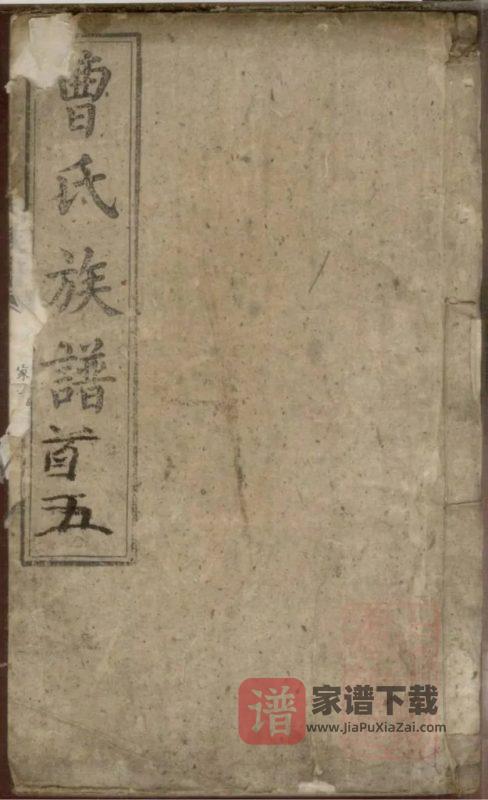 曹氏族譜首五
谱 家谱下载
www.JiaPuXiaZai.com